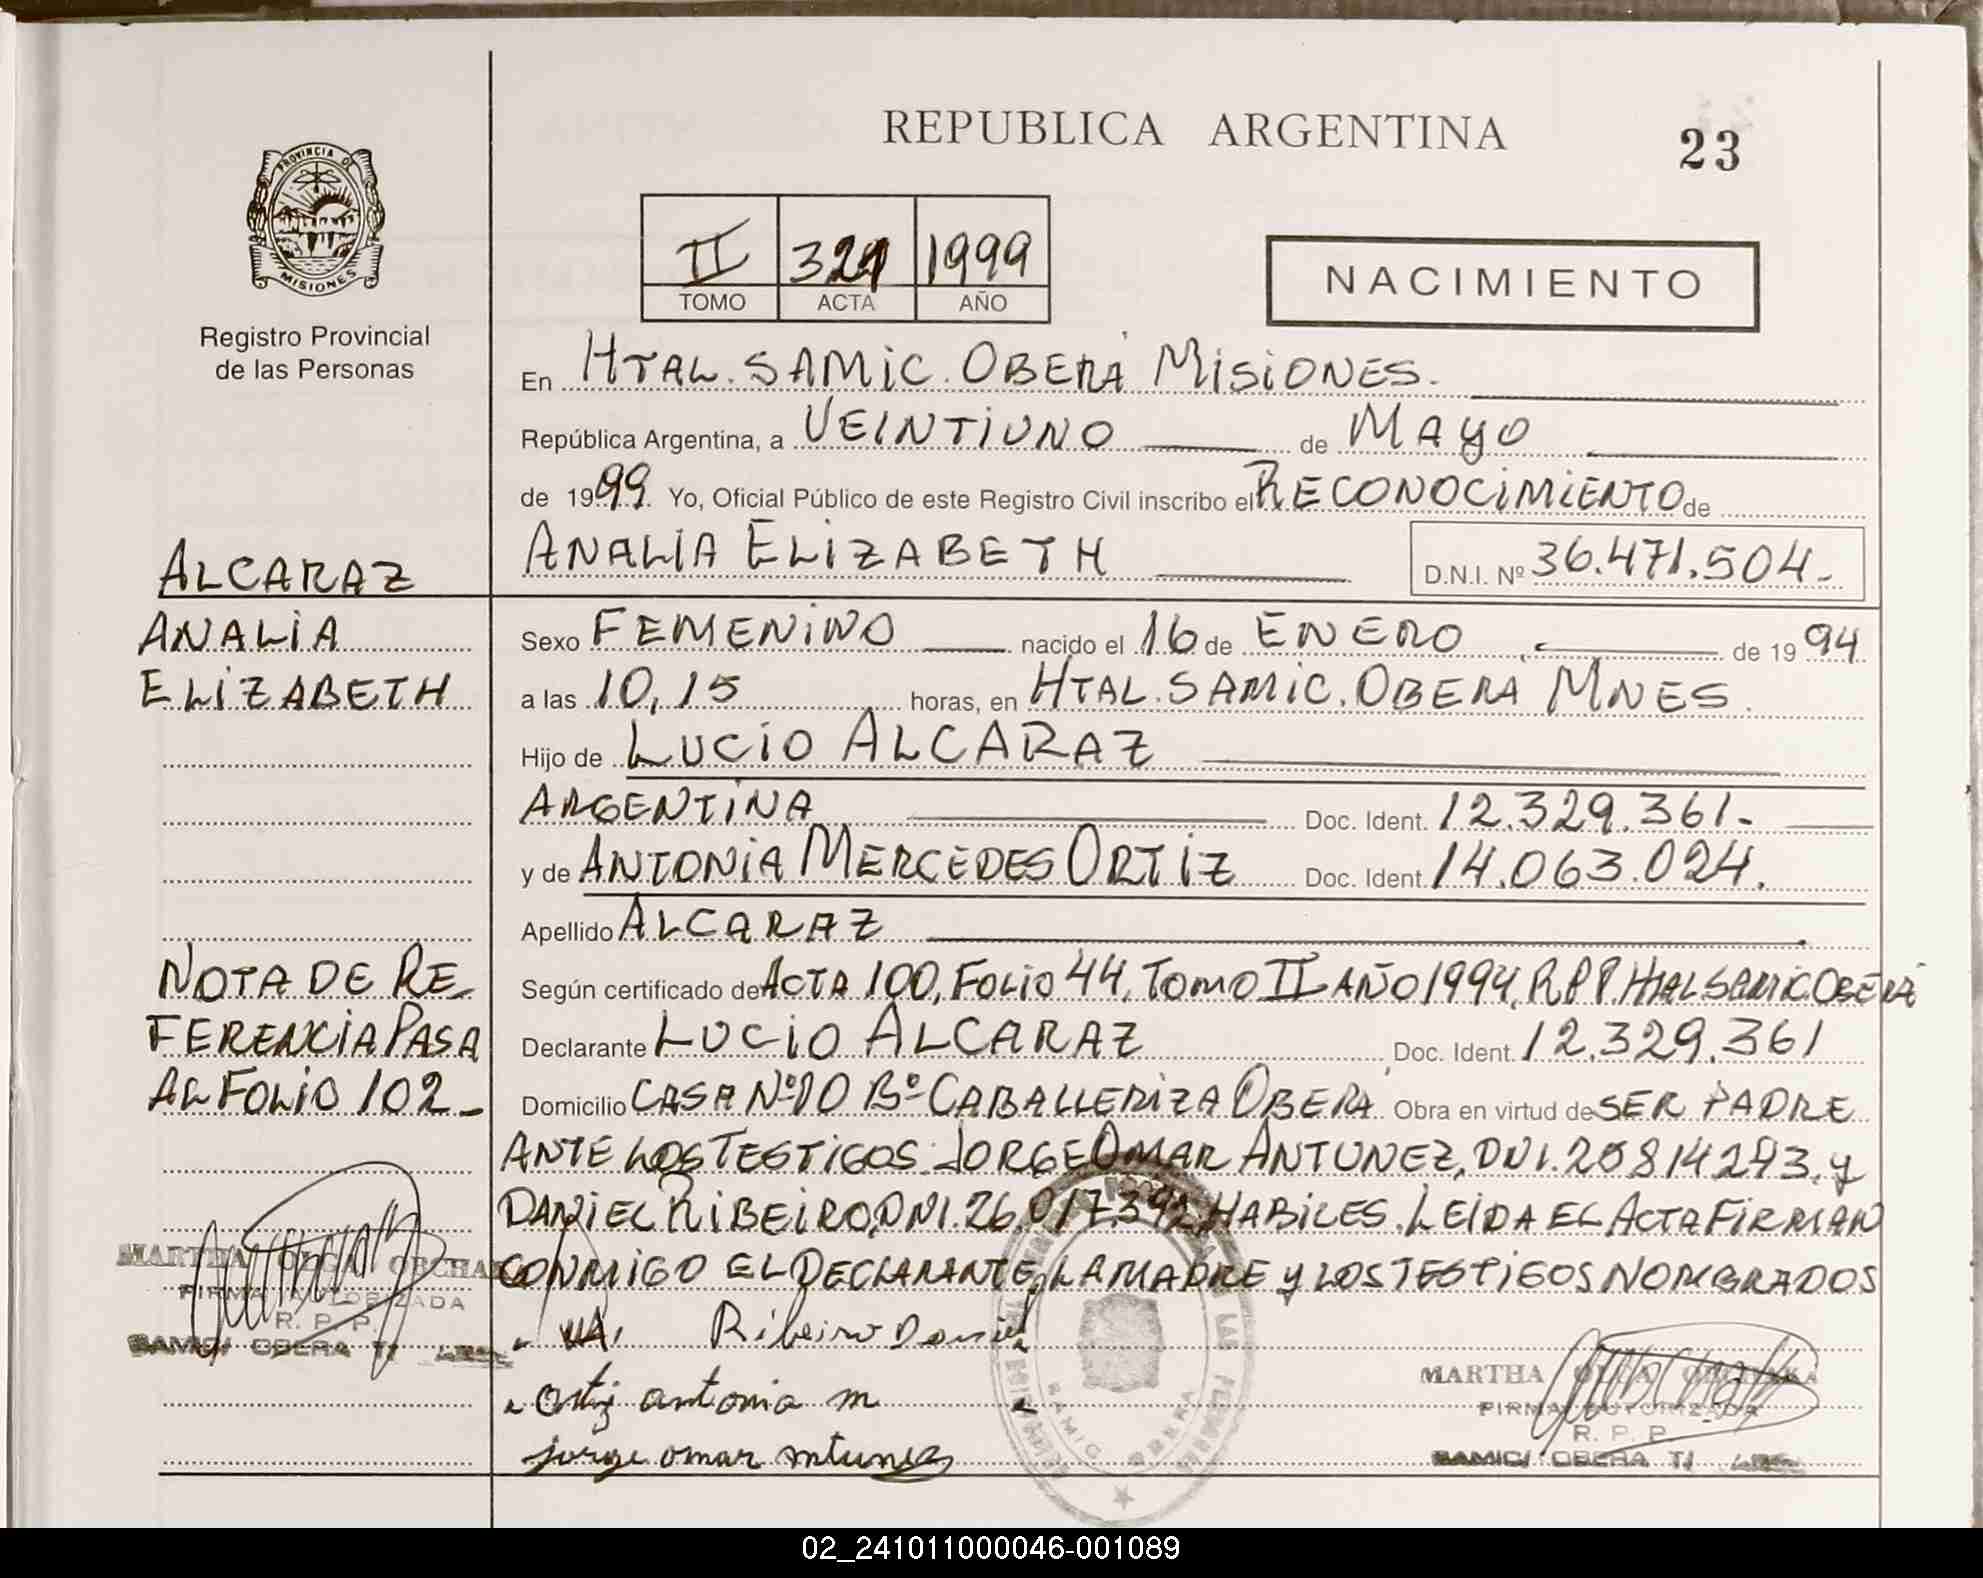 REPUBLICA ARGENTINA
23
PROVINCIA DE
MISIONES
Registro Provincial
de las Personas
II 1999
TOMO ACTA AÑO
NACIMIENTO
En HTAL. SAMIC. OBERÁ MISIONES.
República Argentina, a VEINTIUNO de MAYO
de 1999. Yo, Oficial Público de este Registro Civil inscribo el RECONOCIMIENTO de
ANALIA ELIZABETH D.N.I. Nº 36.471.504.-
ALCARAZ
ANALIA
ELIZABETH
Sexo FEMENINO nacido el 16 de ENERO de 1994
a las 10,15 horas, en HTAL. SAMIC. OBERA MNES.
Hijo de LUCIO ALCARAZ
ARGENTINA Doc. Ident. 12.329.361.-
y de ANTONIA MERCEDES ORTIZ Doc. Ident. 14.063.024.
Apellido ALCARAZ
Según certificado de ACTA 100, FOLIO 44, TOMO II AÑO 1994, R.P.P. HTAL SAMIC. OBERÁ
Declarante LUCIO ALCARAZ Doc. Ident. 12.329.361
Domicilio CASA Nº10 Bº CABALLERIZA OBERÁ Obra en virtud de SER PADRE
ANTE LOS TESTIGOS: JORGE OMAR ANTUNEZ, DNI. y
DANIEL RIBEIRO, DNI. 26.017.392, HABILES. LEIDA EL ACTA FIRMAN
CONMIGO EL DECLARANTE, LA MADRE Y LOS TESTIGOS NOMBRADOS
NOTA DE RE
FERENCIA PASA
AL FOLIO 102-
MARTHA OLGA
FIRMA AUTORIZADA
R. P. P.
SAMIC/ OBERA
Ribeiro Daniel
Ortiz antonia m
jorge omar antunez
SAMIC OBERA
MARTHA OLGA
FIRMA AUTORIZADA
R. P. P.
SAMIC/ OBERA
02_241011000046-001089